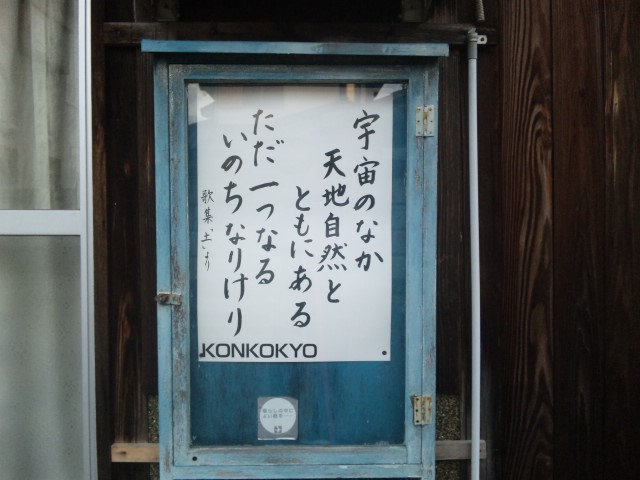 宇宙のなか
天地自然と
ともにある
ただ一つなる
いのちなりけり
歌集“土”より
KONKOKYO